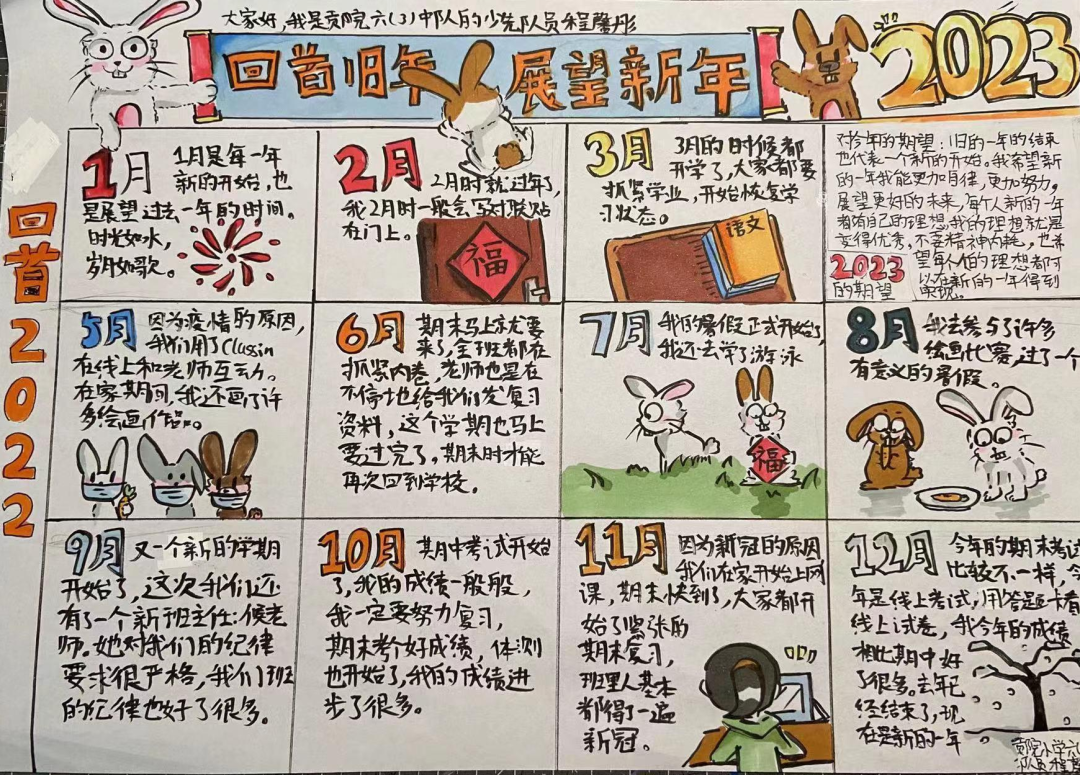 大家好，我是贡院六(3)中队的少先队员程馨彤
回首旧年 展望新年 2023
回首2022
1月
1月是每一年
新的开始，也
是展望过去一年的时间。
时光如水，
岁月如歌。
2月
2月时就过年了，
我2月时一般会写对联贴
在门上。
福
3月
3月的时候都
开学了，大家都要
抓紧学业，开始恢复学
习状态。
语文
对今年的期望：旧的一年的结束
也代表一个新的开始。我希望新
的一年我能更加自律，更加努力。
展望更好的未来，每个人新的一年
都有自己的理想，我的理想就是
变得优秀，不要精神内耗，也希
望每个人的理想都可
以在新的一年得到
实现。
2023
的期望
5月
因为疫情的原因，
我们用了Classin
在线上和老师互动。
在家期间，我还画了许
多绘画作品。
6月
期末马上就要
来了，全班都在
抓紧内卷，老师也是在
不停地给我们发复习
资料，这个学期也马上
要过完了，期末时才能
再次回到学校。
7月
我的暑假正式开始了，
我还去学了游泳
福
8月
我去参与了许多
绘画比赛，过了一个
有意义的暑假。
9月
又一个新的学期
开始了，这次我们还
有了一个新班主任：侯老
师。她对我们的纪律
要求很严格，我们班
的纪律也好了很多。
10月
期中考试开始
了，我的成绩一般般，
我一定要努力复习，
期末考个好成绩，体测
也开始了，我的成绩进
步了很多。
11月
因为新冠的原因
我们在家开始上网
课，期末快到了，大家都开
始了紧张的
期末复习，
班里人基本
都得了一遍
新冠。
12月
今年的期末考试
比较不一样，今
年是线上考试，用答题卡看
线上试卷，我今年的成绩
相比期中好
了很多。去年已
经结束了，现
在是新的一年
贡院小学六
队员程